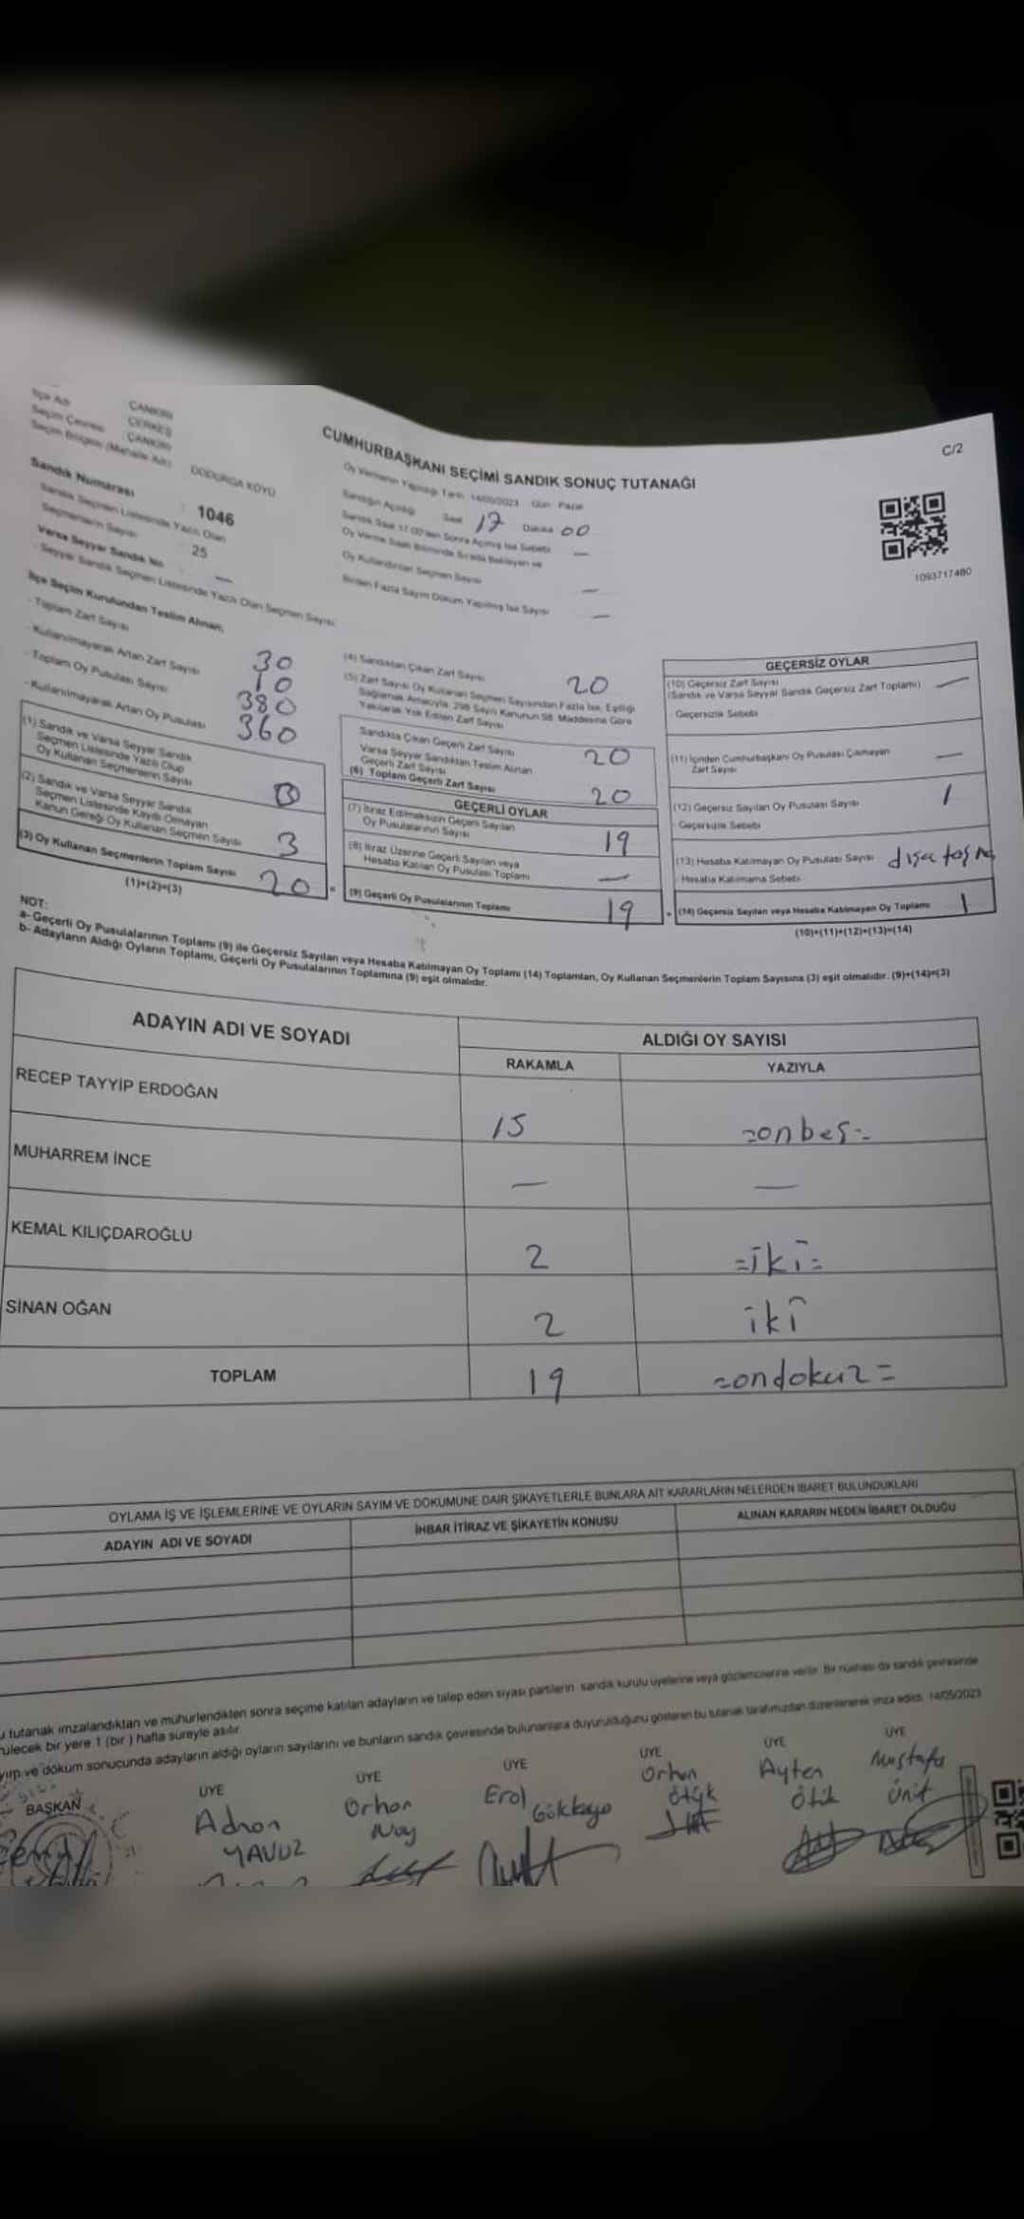 İlçe Adı
ÇANKIRI
ÇERKEŞ
Seçim Çevresi ÇANKIRI
Seçim Bölgesi (Mahalle Adı) DODURGA KÖYÜ
Sandık Numarası : 1046
Sandık Seçmen Listesinde Yazılı Olan
Seçmenlerin Sayısı : 25
Varsa Seyyar Sandık No : —
- Seyyar Sandık Seçmen Listesinde Yazılı Olan Seçmen Sayısı
CUMHURBAŞKANI SEÇİMİ SANDIK SONUÇ TUTANAĞI
Oy Vermenin Yapıldığı Tarih: 14/05/2023 Gün: Pazar
Sandığın Açıldığı Saat 17 Dakika 00
Sandık Saat 17.00'den Sonra Açılmış İse Sebebi —
Oy Verme Saati Bitiminde Sırada Bekleyen ve
Oy Kullandırılan Seçmen Sayısı —
Birden Fazla Sayım Döküm Yapılmış İse Sayısı —
C/2
1093717480
İlçe Seçim Kurulundan Teslim Alınan;
- Toplam Zarf Sayısı 30
- Kullanılmayarak Artan Zarf Sayısı 10
- Toplam Oy Pusulası Sayısı 380
- Kullanılmayarak Artan Oy Pusulası 360
(1) Sandık ve Varsa Seyyar Sandık
Seçmen Listesinde Yazılı Olup
Oy Kullanan Seçmenlerin Sayısı
(2) Sandık ve Varsa Seyyar Sandık
Seçmen Listesinde Kayıtlı Olmayan
Kanun Gereği Oy Kullanan Seçmen Sayısı 3
(3) Oy Kullanan Seçmenlerin Toplam Sayısı 20
(1)+(2)=(3)
(4) Sandıktan Çıkan Zarf Sayısı 20
(5) Zarf Sayısı Oy Kullanan Seçmen Sayısından Fazla İse, Eşitliği
Sağlamak Amacıyla, 298 Sayılı Kanunun 98. Maddesine Göre
Yakılarak Yok Edilen Zarf Sayısı
Sandıkta Çıkan Geçerli Zarf Sayısı 20
Varsa Seyyar Sandıktan Teslim Alınan
Geçerli Zarf Sayısı
(6) Toplam Geçerli Zarf Sayısı 20
GEÇERLİ OYLAR
(7) İtiraz Edilmeksizin Geçerli Sayılan
Oy Pusulalarının Sayısı 19
(8) İtiraz Üzerine Geçerli Sayılan veya
Hesaba Katılan Oy Pusulası Toplamı —
(9) Geçerli Oy Pusulalarının Toplamı 19
GEÇERSİZ OYLAR
(10) Geçersiz Zarf Sayısı —
(Sandık ve Varsa Seyyar Sandık Geçersiz Zarf Toplamı)
Geçersizlik Sebebi
(11) İçinden Cumhurbaşkanı Oy Pusulası Çıkmayan
Zarf Sayısı —
(12) Geçersiz Sayılan Oy Pusulası Sayısı 1
Geçersizlik Sebebi
(13) Hesaba Katılmayan Oy Pusulası Sayısı dışa taşma
Hesaba Katılmama Sebebi
(14) Geçersiz Sayılan veya Hesaba Katılmayan Oy Toplamı 1
(10)+(11)+(12)+(13)=(14)
NOT:
a- Geçerli Oy Pusulalarının Toplamı (9) ile Geçersiz Sayılan veya Hesaba Katılmayan Oy Toplamı (14) Toplamları, Oy Kullanan Seçmenlerin Toplam Sayısına (3) eşit olmalıdır. (9)+(14)=(3)
b- Adayların Aldığı Oyların Toplamı, Geçerli Oy Pusulalarının Toplamına (9) eşit olmalıdır.
ADAYIN ADI VE SOYADI
ALDIĞI OY SAYISI
RAKAMLA YAZIYLA
RECEP TAYYİP ERDOĞAN 15 =onbeş=
MUHARREM İNCE — —
KEMAL KILIÇDAROĞLU 2 =iki=
SİNAN OĞAN 2 iki
TOPLAM 19 =ondokuz=
OYLAMA İŞ VE İŞLEMLERİNE VE OYLARIN SAYIM VE DÖKÜMÜNE DAİR ŞİKAYETLERLE BUNLARA AİT KARARLARIN NELERDEN İBARET BULUNDUKLARI
ADAYIN ADI VE SOYADI İHBAR İTİRAZ VE ŞİKAYETİN KONUSU ALINAN KARARIN NEDEN İBARET OLDUĞU
u tutanak imzalandıktan ve mühürlendikten sonra seçime katılan adayların ve talep eden siyasi partilerin sandık kurulu üyelerine veya gözlemcilerine verilir. Bir nüshası da sandık çevresinde
rülecek bir yere 1 (bir) hafta süreyle asılır.
yım ve döküm sonucunda adayların aldığı oyların sayılarını ve bunların sandık çevresinde bulunanlara duyurulduğunu gösteren bu tutanak tarafımızdan düzenlenerek imza edildi. 14/05/2023
BAŞKAN ÜYE ÜYE ÜYE ÜYE ÜYE ÜYE
Adnan YAVUZ
Orhan
Erol Gökkaya
Orhan
Ayten
Mustafa Ünit